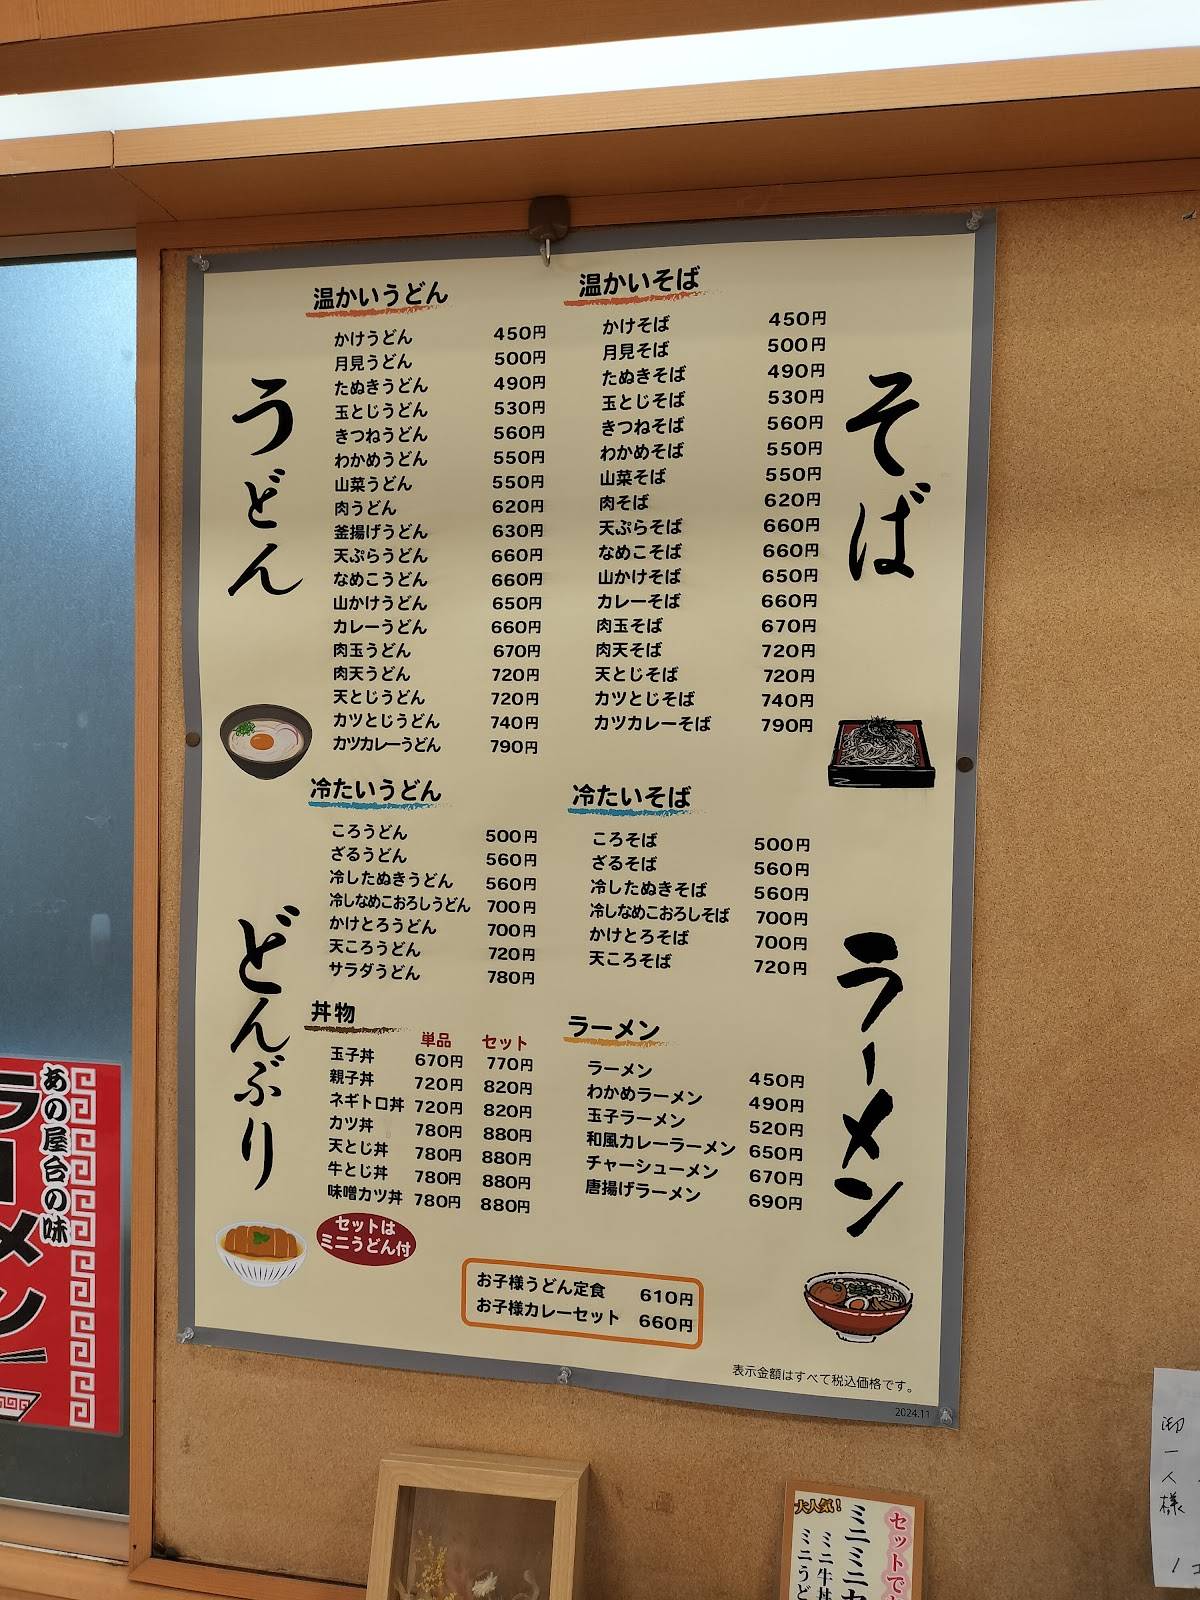 うどん
温かいうどん
かけうどん 450円
月見うどん 500円
たぬきうどん 490円
玉とじうどん 530円
きつねうどん 560円
わかめうどん 550円
山菜うどん 550円
肉うどん 620円
釜揚げうどん 630円
天ぷらうどん 660円
なめこうどん 660円
山かけうどん 650円
カレーうどん 660円
肉玉うどん 670円
肉天うどん 720円
天とじうどん 720円
カツとじうどん 740円
カツカレーうどん 790円
そば
温かいそば
かけそば 450円
月見そば 500円
たぬきそば 490円
玉とじそば 530円
きつねそば 560円
わかめそば 550円
山菜そば 550円
肉そば 620円
天ぷらそば 660円
なめこそば 660円
山かけそば 650円
カレーそば 660円
肉玉そば 670円
肉天そば 720円
天とじそば 720円
カツとじそば 740円
カツカレーそば 790円
冷たいうどん
ころうどん 500円
ざるうどん 560円
冷したぬきうどん 560円
冷しなめこおろしうどん 700円
かけとろうどん 700円
天ころうどん 720円
サラダうどん 780円
冷たいそば
ころそば 500円
ざるそば 560円
冷したぬきそば 560円
冷しなめこおろしそば 700円
かけとろそば 700円
天ころそば 720円
どんぶり
丼物
単品 セット
玉子丼 670円 770円
親子丼 720円 820円
ネギトロ丼 720円 820円
カツ丼 780円 880円
天とじ丼 780円 880円
牛とじ丼 780円 880円
味噌カツ丼 780円 880円
セットは
ミニうどん付
ラーメン
ラーメン
ラーメン 450円
わかめラーメン 490円
玉子ラーメン 520円
和風カレーラーメン 650円
チャーシューメン 670円
唐揚げラーメン 690円
お子様うどん定食 610円
お子様カレーセット 660円
表示金額はすべて税込価格です。
2024.11
あの屋台の味
ラーメン
大人気！
セットで
ミニミニセ
ミニ牛丼
ミニうど
御一人様